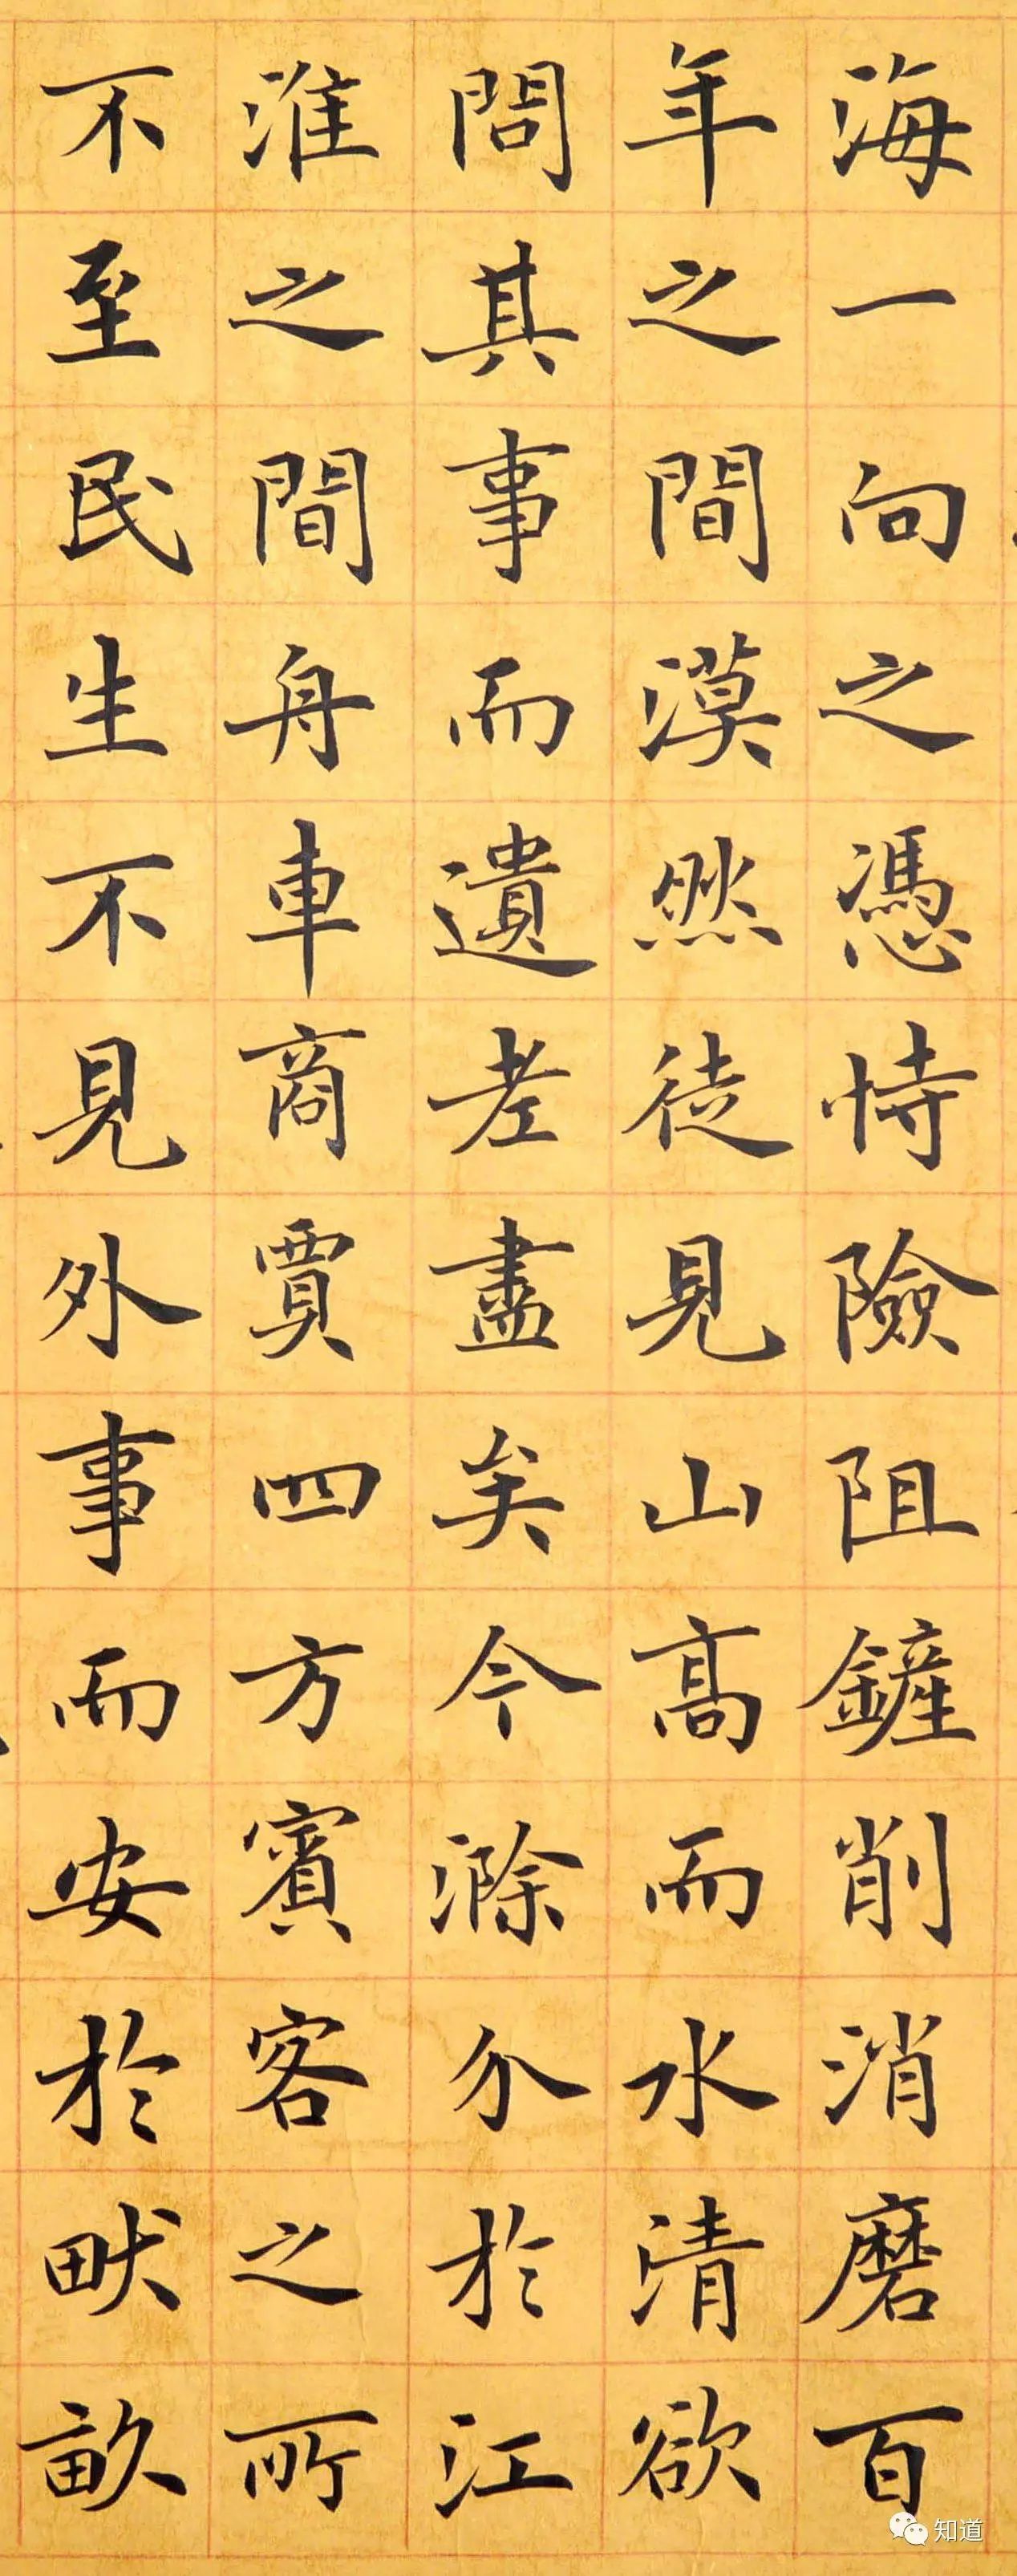 海一向之憑恃險阻鏟削消磨百
年之間漠然徒見山高而水清欲
問其事而遺老盡矣今滁介於江
淮之間舟車商賈四方賓客之所
不至民生不見外事而安於畎畝
知道